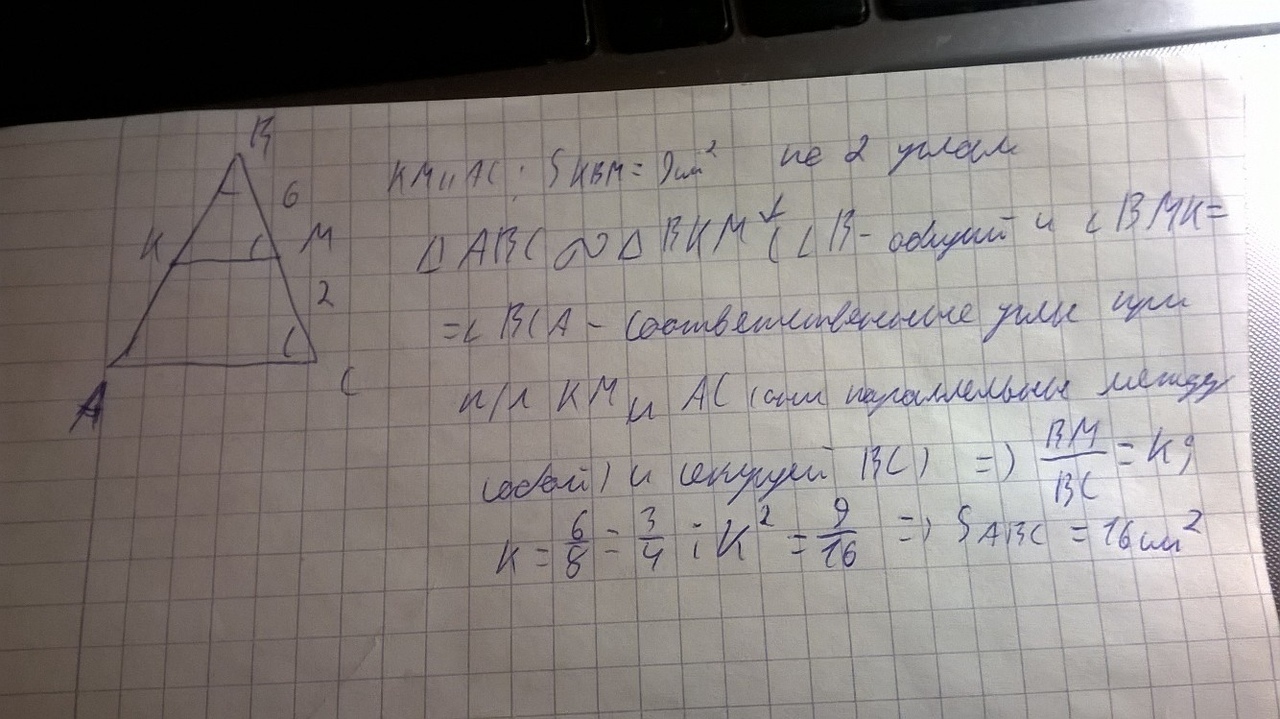 B
6
K
M
2
A
C
KM || AC; S KBM = 9 см² по 2 углам
Δ ABC ∾ Δ BKM (∠B - общий и ∠BMK =
= ∠BCA - соответственные углы при
п/л KM и AC (они параллельны между
собой) и секущей BC) => BM/BC = K;
K = 6/8 = 3/4; K² = 9/16 => S ABC = 16 см²